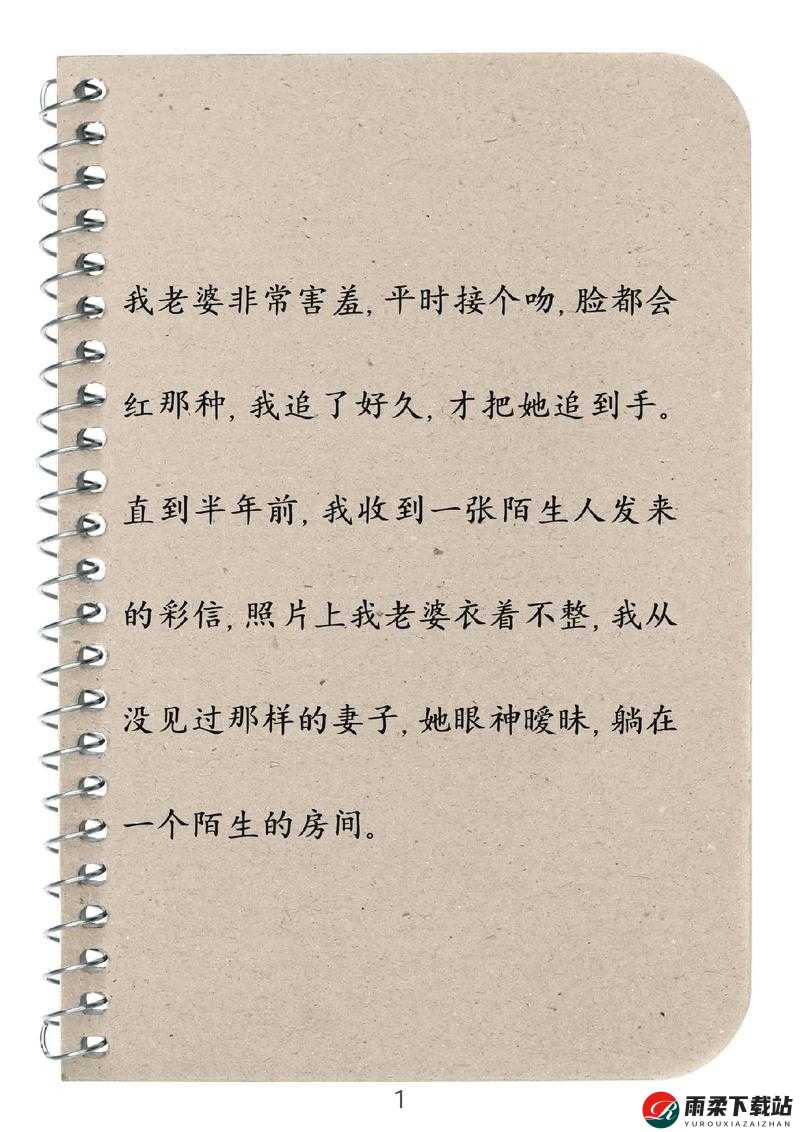 我老婆非常害羞,平时接个吻,脸都会
红那种,我追了好久,才把她追到手。
直到半年前,我收到一张陌生人发来
的彩信,照片上我老婆衣着不整,我从
没见过那样的妻子,她眼神暧昧,躺在
一个陌生的房间。
1
雨柔下载站
YUROUXIAZAIZHAN